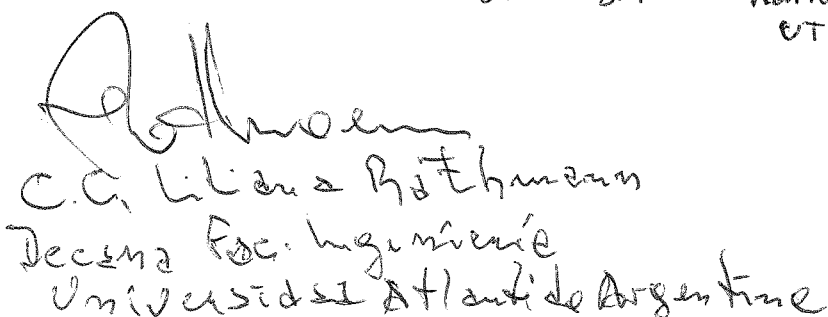 UT
Rothmann
C.C. Liliana Rothmann
Decana Fac. Ingeniería
Universidad Atlántida Argentina